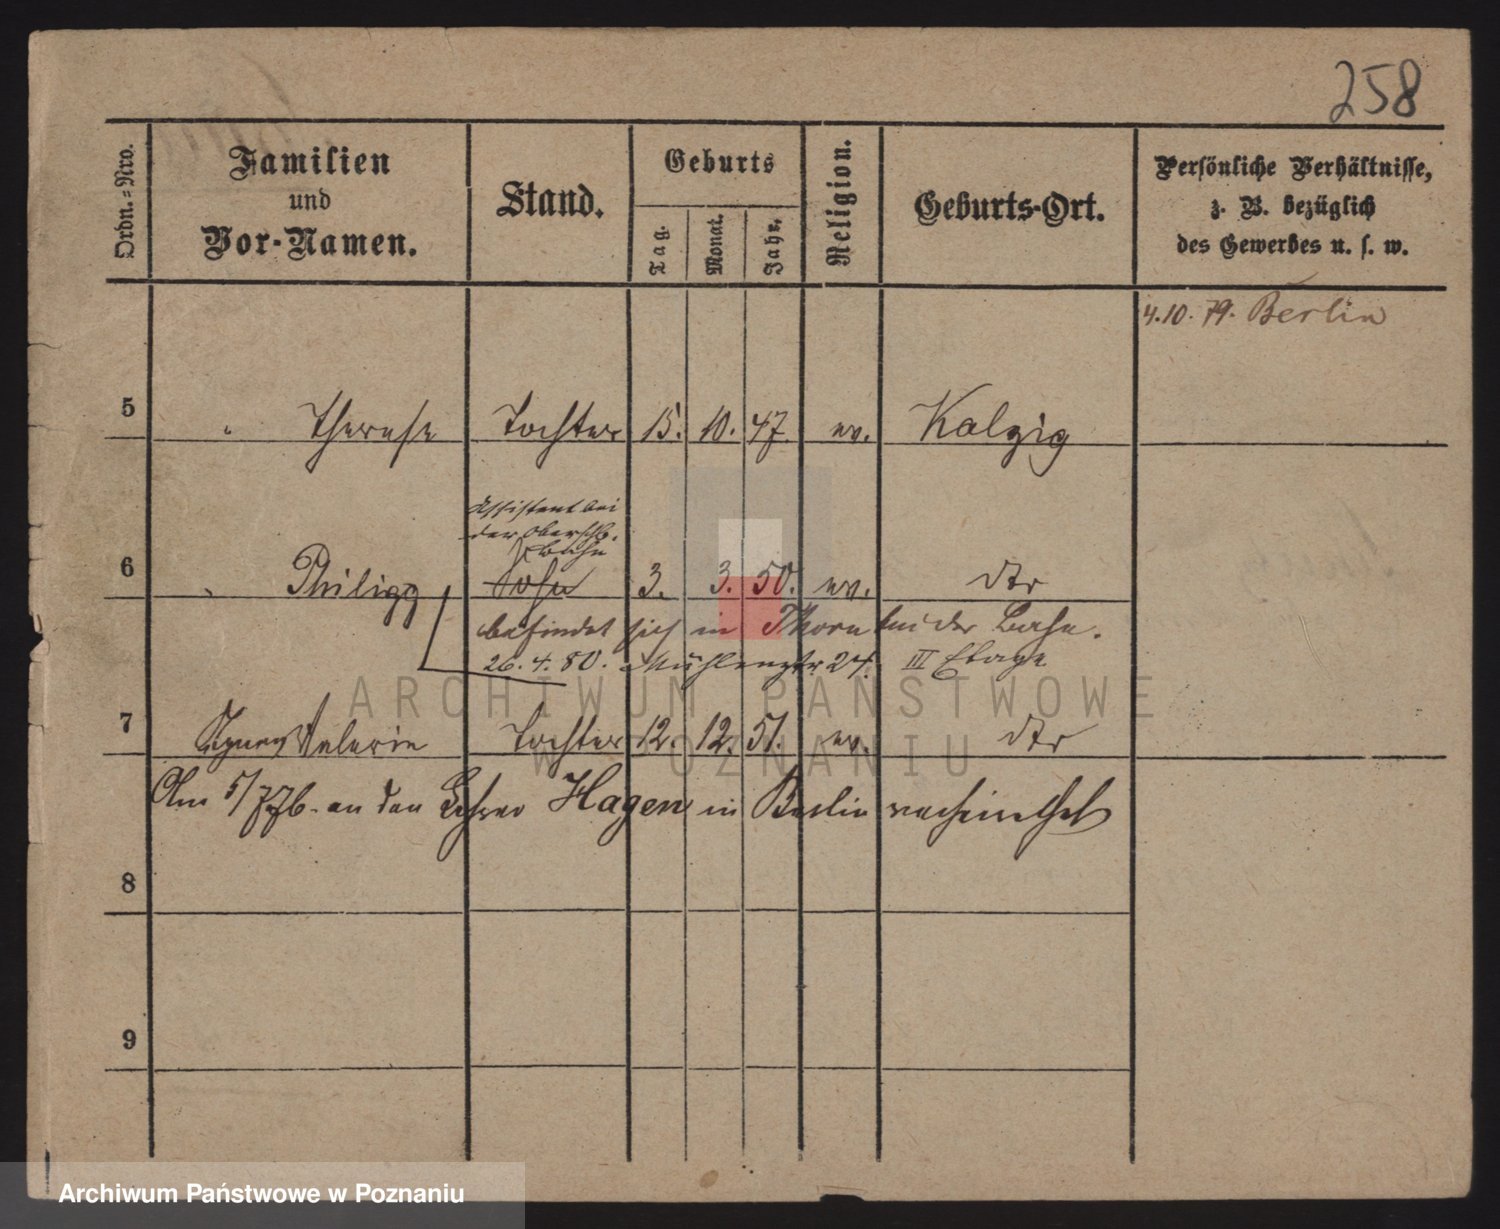 258
Ordn.-Nro.
Familien
und
Vor-Namen.
Stand.
Geburts
Tag.
Monat.
Jahr.
Religion.
Geburts-Ort.
Persönliche Verhältnisse,
z. B. bezüglich
des Gewerbes u. s. w.
4.10. 79. Berlin
5 " Therese Tochter 15. 10. 47. ev. Kalzig
Assistent bei
der Oberschls.
Bahn
6 " Philipp Sohn 3. 3. 50. ev. dto
befindet sich in Thorn bei der Bahn.
26. 4. 80. Mühlenstr. 24. III Etage
7 Agnes Valerie Tochter 12. 12. 51. ev. dto
Am 5/7 76. an den Lehrer Hagen in Berlin verheirathet
8
9
ARCHIWUM PAŃSTWOWE
W POZNANIU
Archiwum Państwowe w Poznaniu